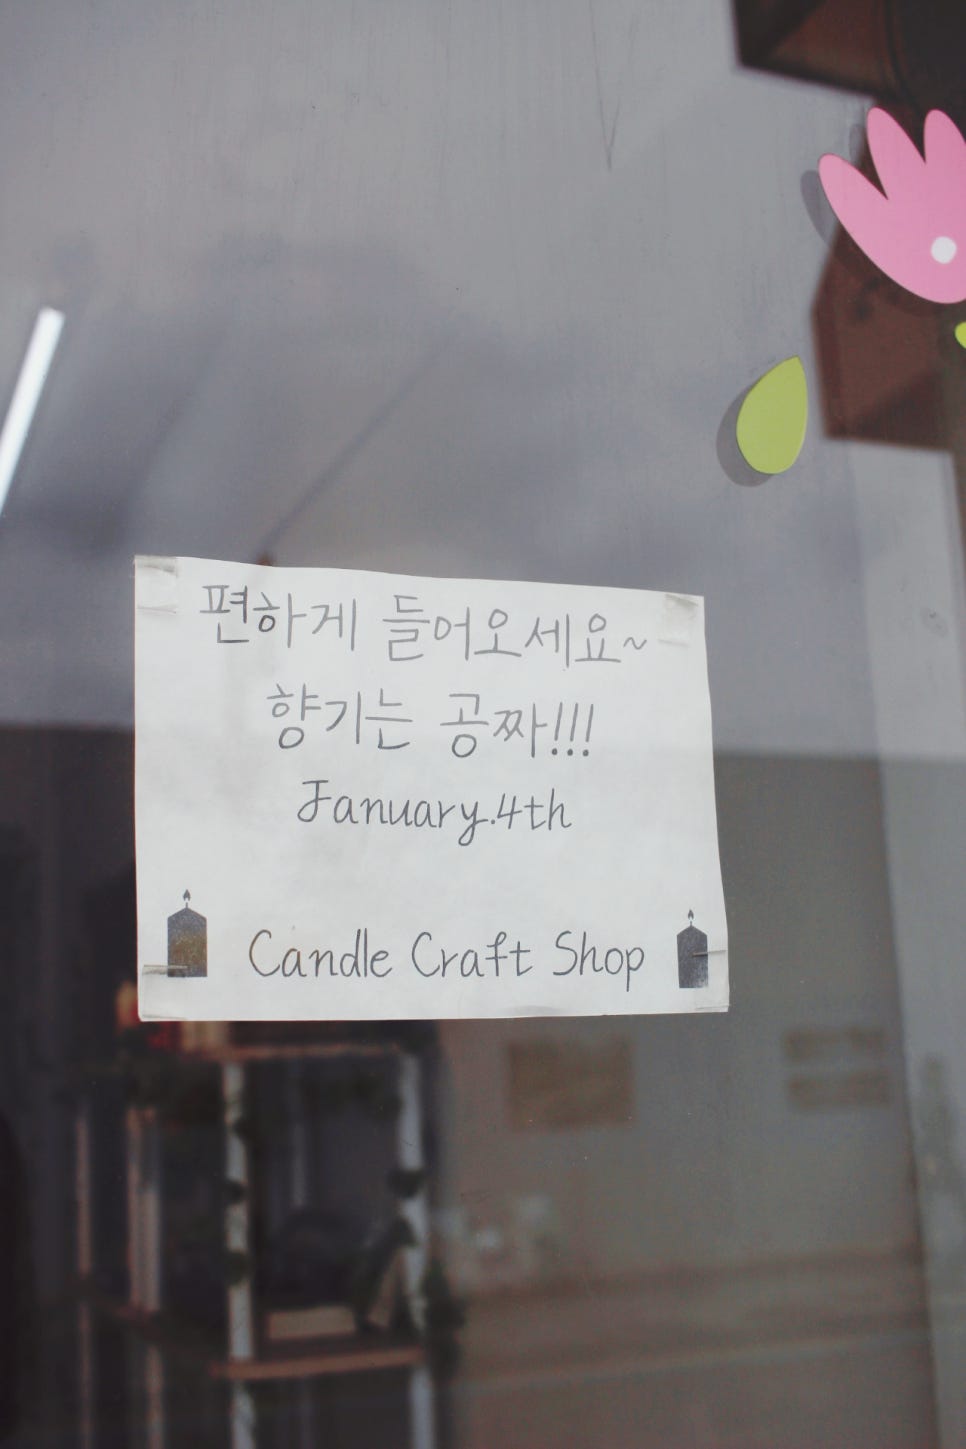 편하게 들어오세요~
향기는 공짜!!!
January.4th
Candle Craft Shop